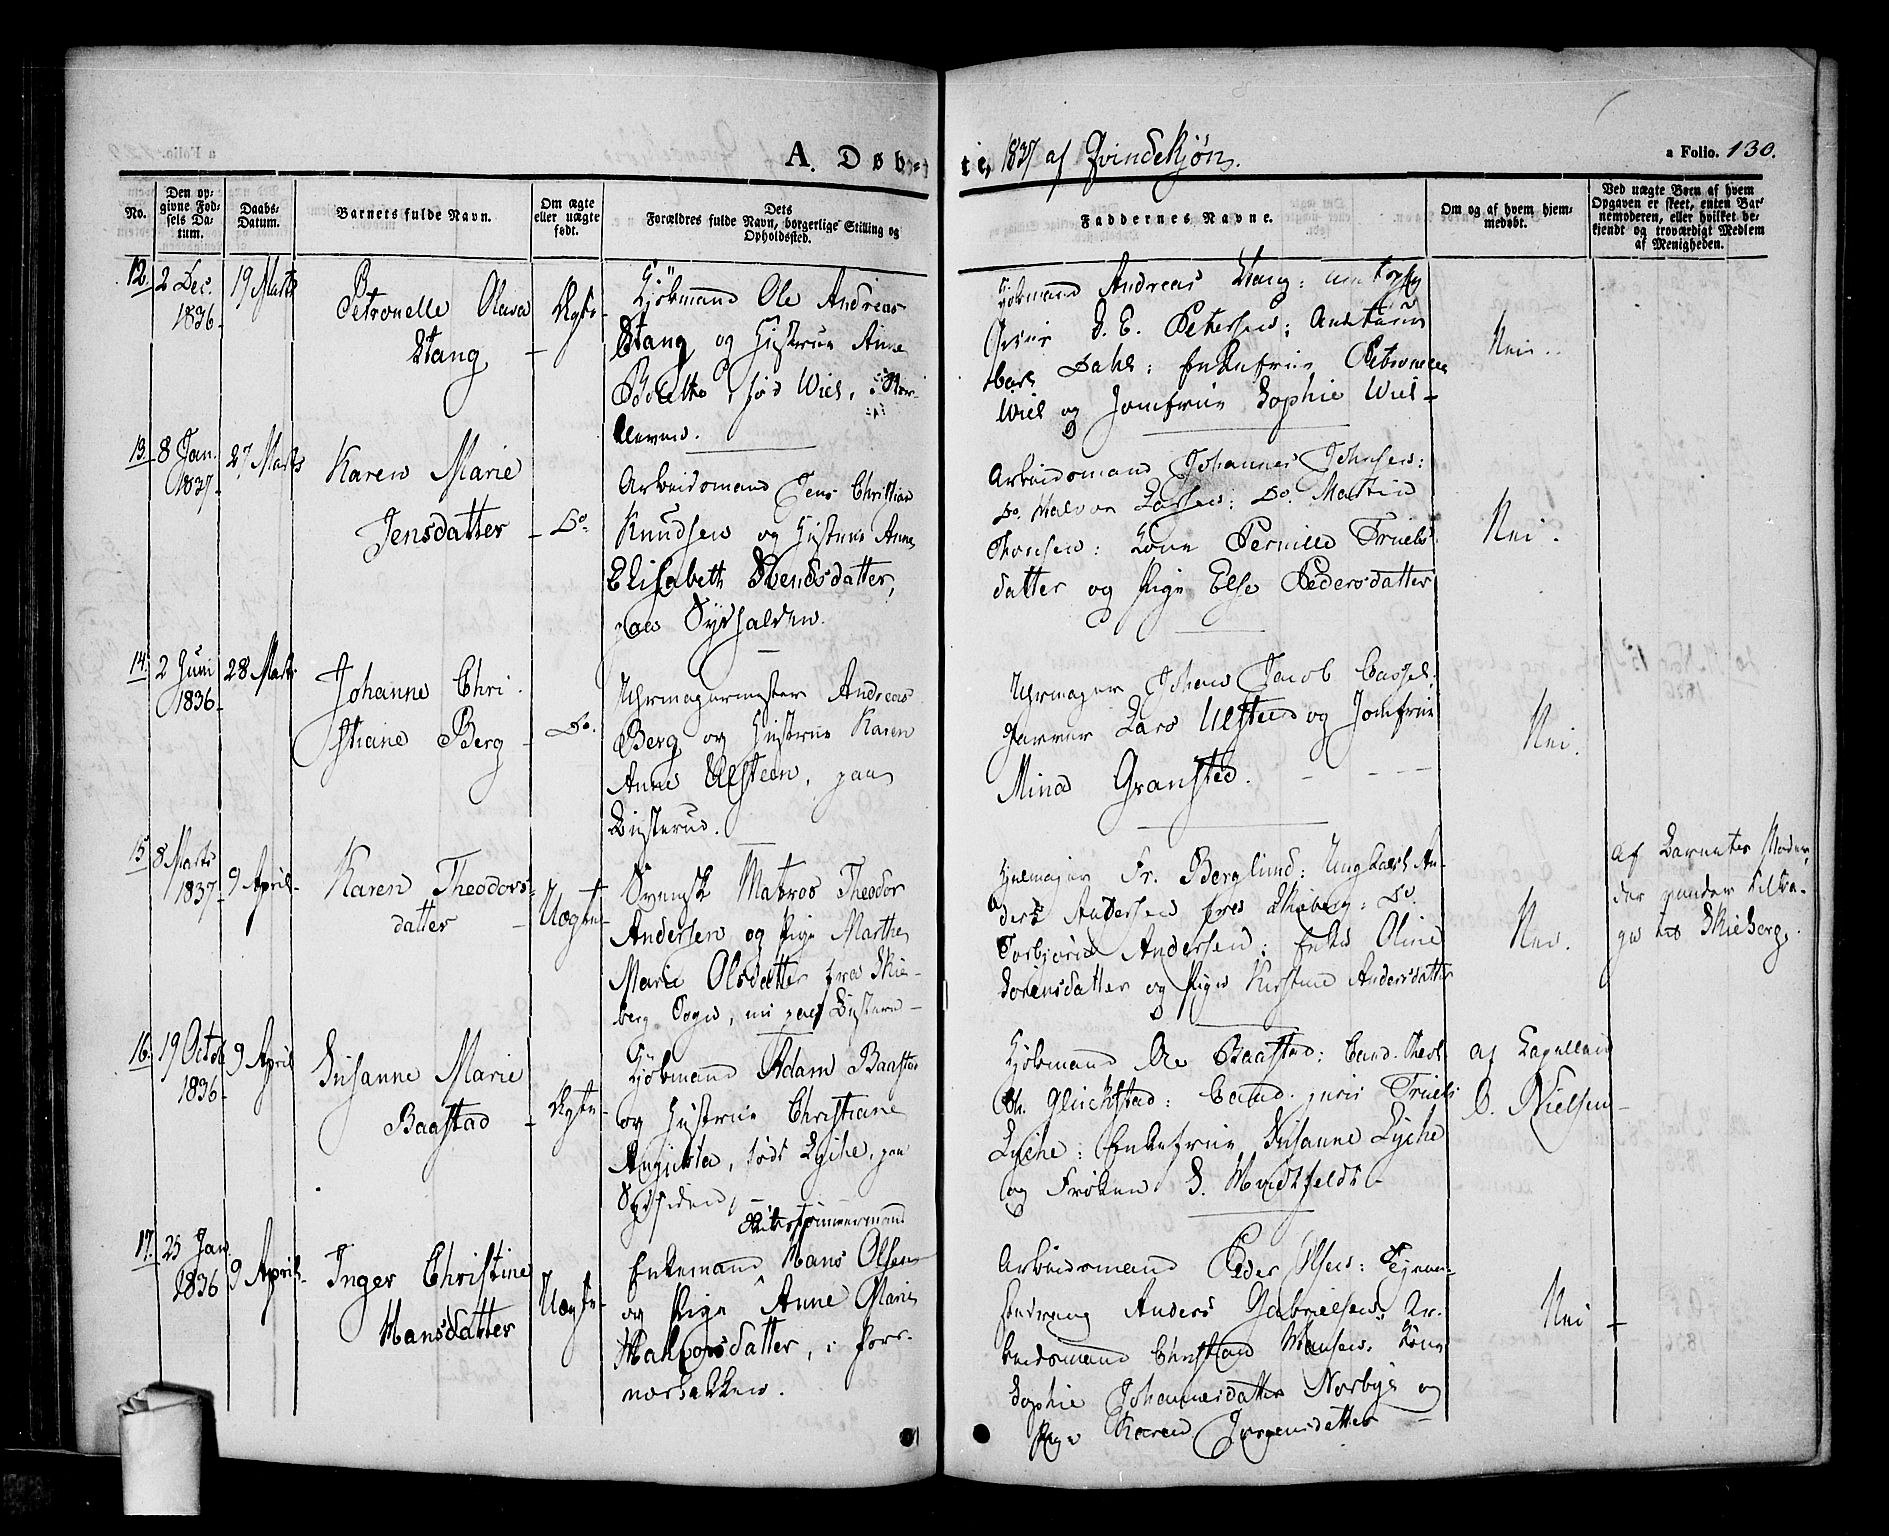 A. Døb-
te, 1837 af Qvindekjøn.
a Folio. 130.
No.
Den op-
givne Fød-
sels Da-
tum.
Daabs-
Datum.
Barnets fulde Navn.
Om ægte
eller uægte
født.
Dets
Forældres fulde Navn, borgerlige Stilling og
Opholdssted.
Faddernes Navne.
Om og af hvem hjem-
medøbt.
Ved uægte Børn af hvem
Opgaven er skeet, enten Bar-
nemoderen, eller hvilket be-
kjendt og troværdigt Medlem
af Menigheden.
12.
2 Dec.
1836.
19 Marts
Petronelle Olava
Stang
Ægte
Kjöbmand Ole Andreas
Stang og Hustrue Anne
Bolette, fød Wiel, i Nor-
Kjöbmand Andreas Stang:
P. E. Petersen:
Dahl: Enkefrue Petronelle
Wiel og Jomfrue Sophie Wiel
Nei.
13.
8 Jan.
1837.
27 Marts
Karen Marie
Jensdatter
Do.
Arbeidsmand Jens Christian
Knudsen og Hustrue Anne
Elisabeth Svendsdatter,
paa Sydhalden.
Arbeidsmand Johannes Johnsen:
Do. Halvor Larsen: Do. Martin
Thonsen: Kone Pernille Truels-
datter og Pige Else Pedersdatter
Nei.
14.
2 Juni
1836.
28 Marts
Johanne Chri-
stiane Berg
Do.
Uhrmagermester Andreas
Berg og Hustrue Karen
Anne Ulsteen, paa
Uhrmager Johan Jacob Cassel:
Garver Lars Ulsteen og Jomfrue
Mina Gransted.
Nei.
15.
8 Marts
1837.
9 April
Karen Theodors-
datter
Uægte
Svensk Matros Theodor
Andersen og Pige Marthe
Marie Olsdatter fra Skie-
berg Sogn, nu paa
Fr. Berglund: Ungkarl An-
ders Andersen fra Skieberg: Do.
Torbjörn Andersen: Enke Oline
Sörensdatter og Pige Kirstine Andersdatter
Nei.
af Barnets Moder,
Skieberg.
16.
19 Octob
1836.
9 April
Susanne Marie
Baastad
Ægte
Kjöbmand Adam Baastad
og Hustrue Christiane
Augusta, født Lyche, paa
Sydsiden,
Kjöbmand Ole Baastad: Cand. theol.
Glückstad: Cand. juris Truels
Lyche: Enkefrue Susanne Lyche
og Frøken S. Hvidtfeldt
af Kapellan
C. Nielsen
17.
25 Jan.
1836
9 April
Inger Christine
Hansdatter
Uægte
Skibstømmermand
Enkemand Hans Olsen
og Pige Anne Marie
Halvorsdatter, i
Arbeidsmand Peder Olsen: Tjene-
stedreng Anders Gabrielsen: Ar-
beidsmand Christian Hansen: Kone
Sophie Johannesdatter Norbye og
Pige Karen Jørgensdatter
Nei